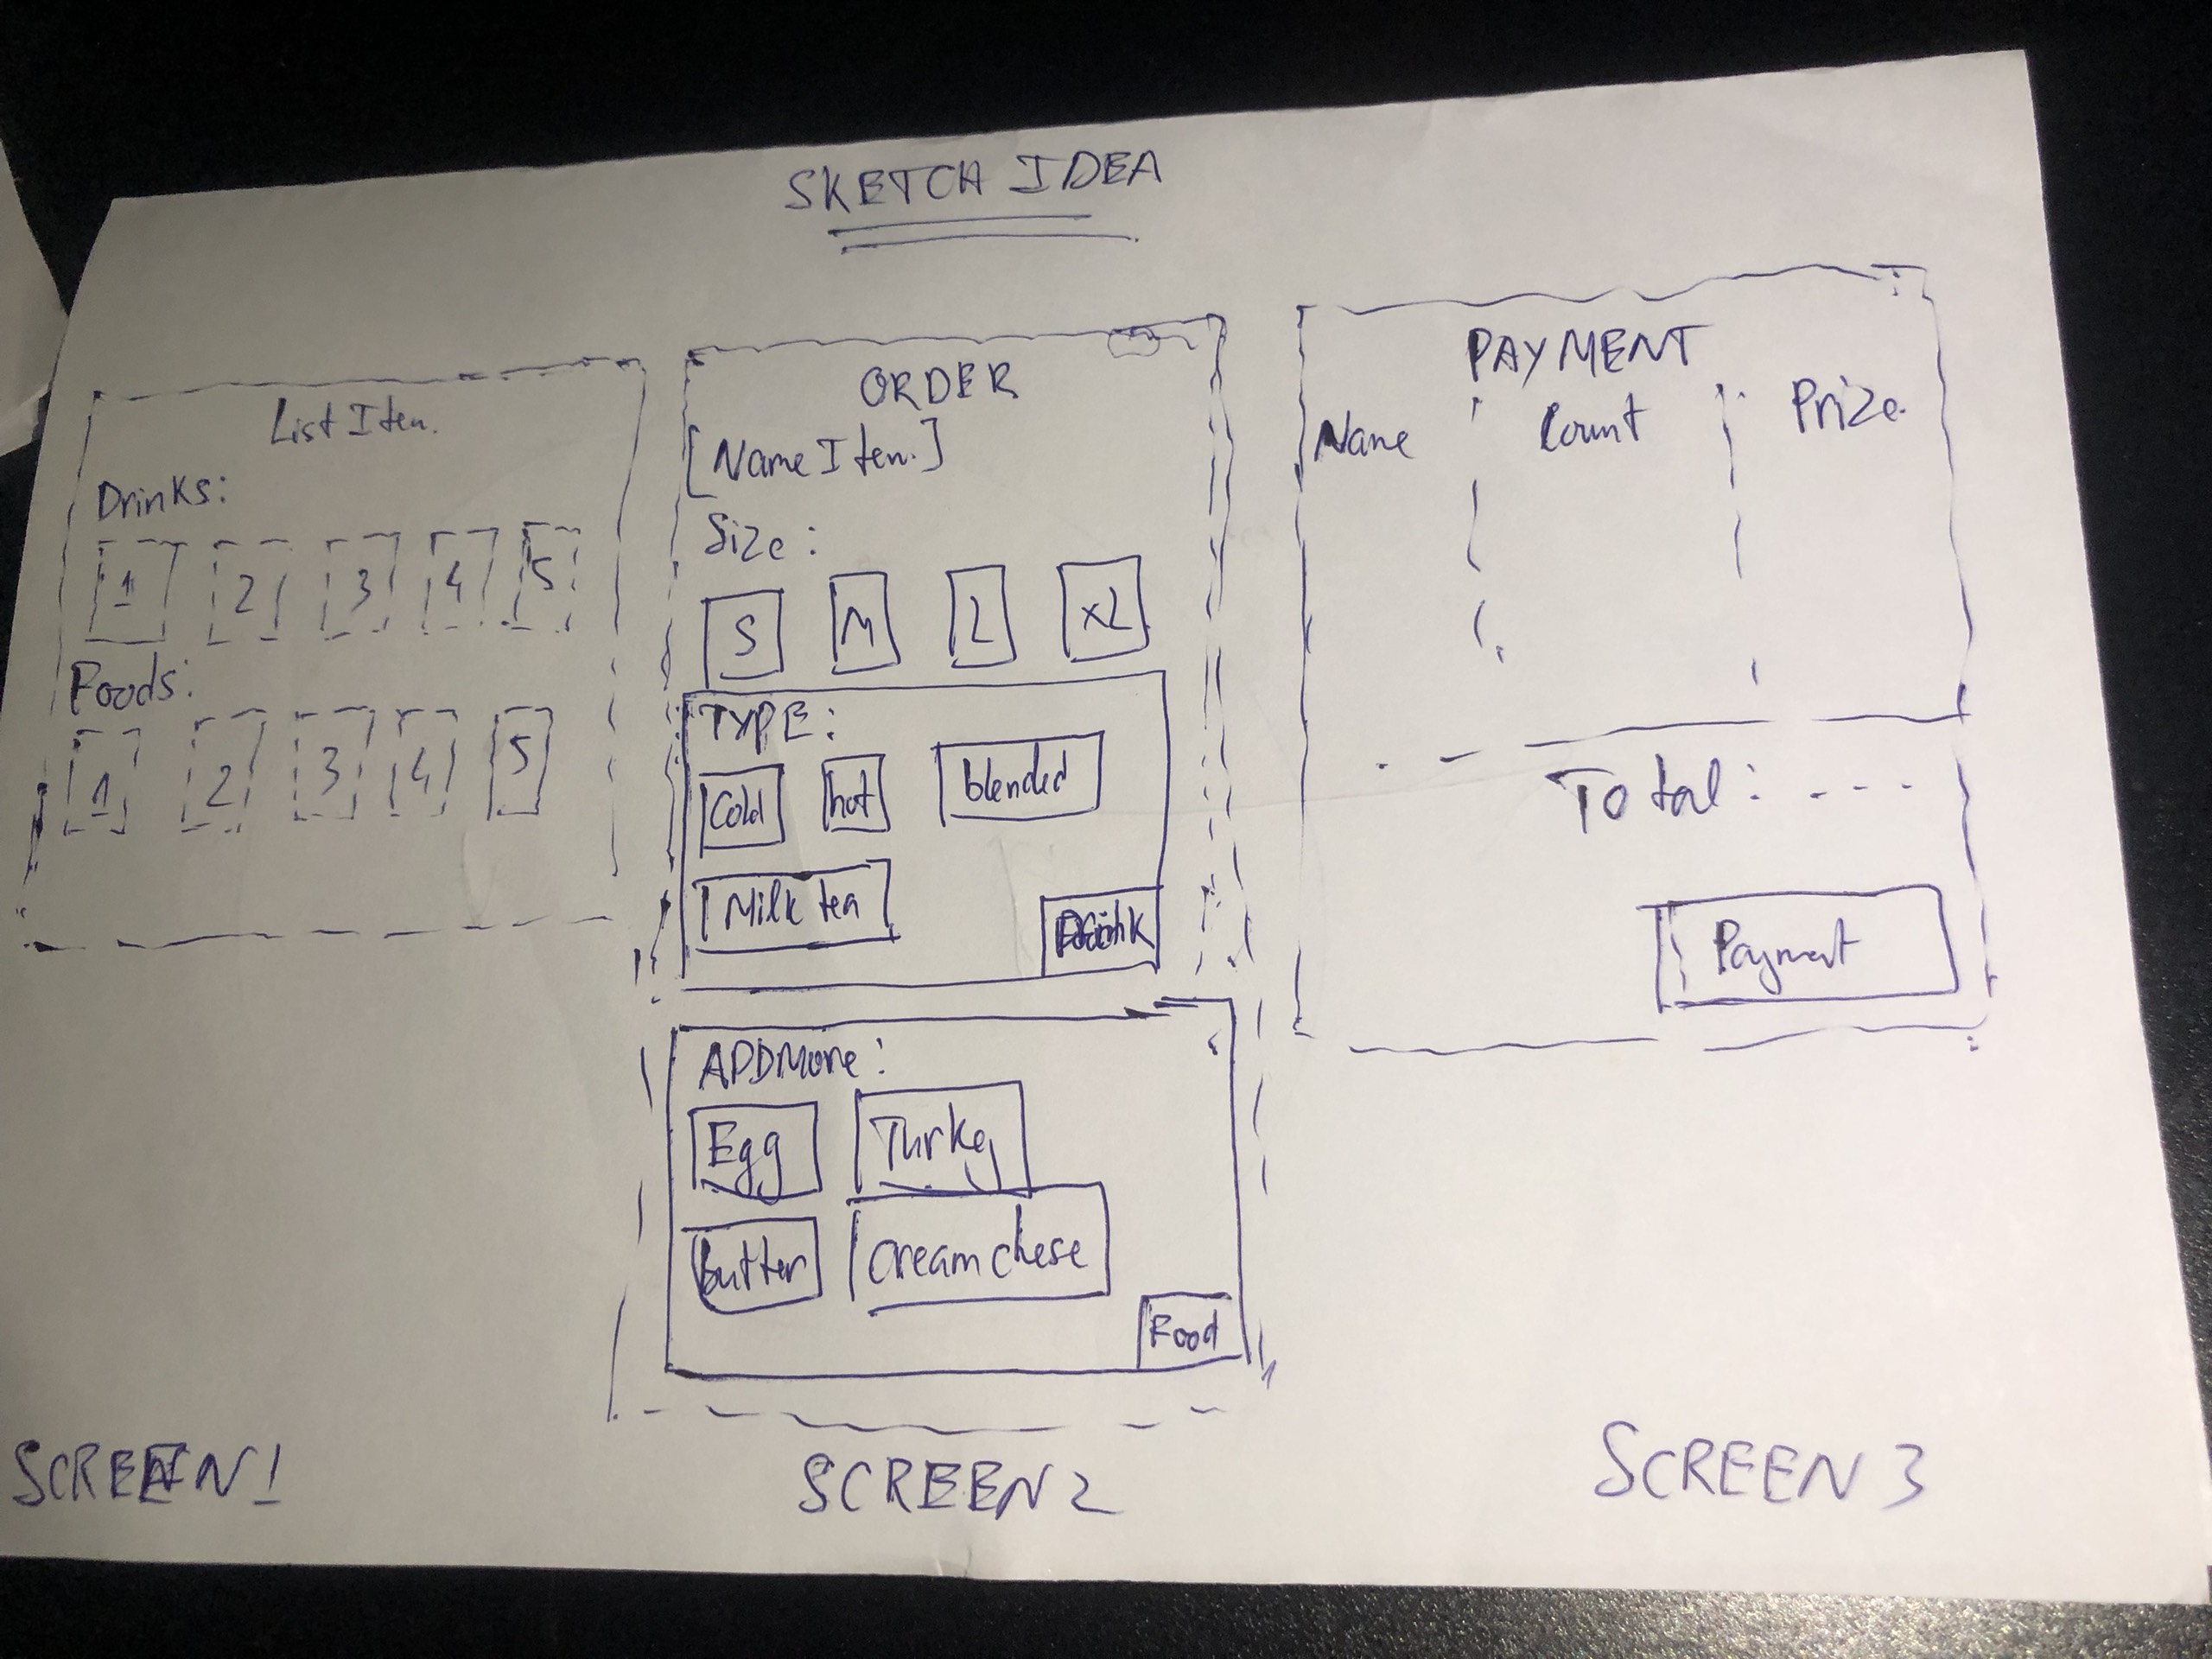 SKETCH IDEA
List Iten.
Drinks:
1 2 3 4 5
Foods:
1 2 3 4 5
SCREEN 1
ORDER
[Name Iten.]
Size:
S M L XL
TYPE:
Cold hot blended
Milk tea
Drink
ADDMore:
Egg Turkey
Butter Cream chese
Food
SCREEN 2
PAYMENT
Name Count Prize.
Total: ----
Payment
SCREEN 3